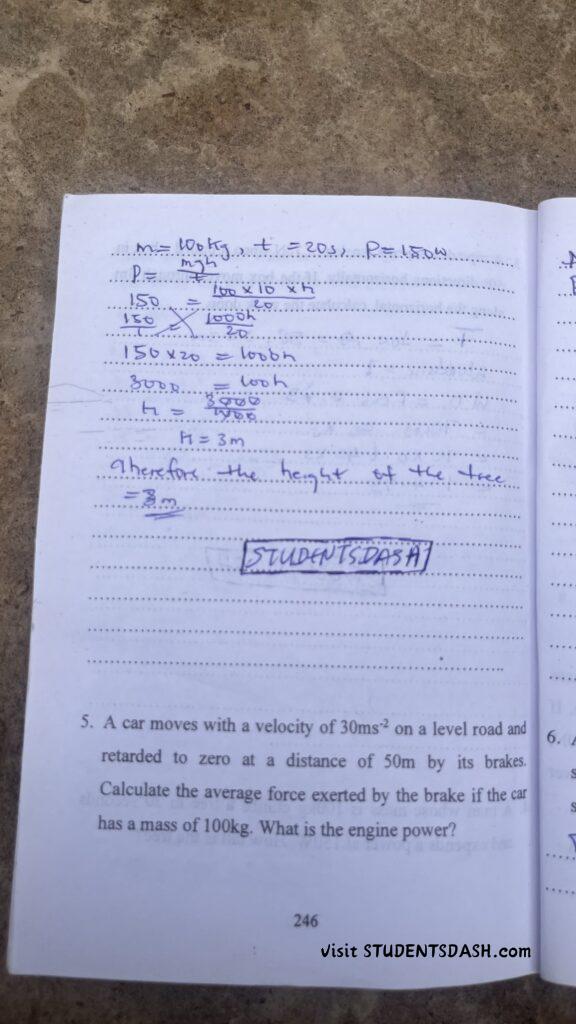 m = 100kg, t = 20s, P = 150W
P = mgh/t
150 = 100 × 10 × h/20
150/1 = 1000h/20
150 × 20 = 1000h
3000 = 100h
H = 3000/1000
H = 3m
Therefore the height of the tree
= 3m
STUDENTSDASH
5. A car moves with a velocity of 30ms⁻² on a level road and
retarded to zero at a distance of 50m by its brakes.
Calculate the average force exerted by the brake if the car
has a mass of 100kg. What is the engine power?
6.
246
visit STUDENTSDASH.com